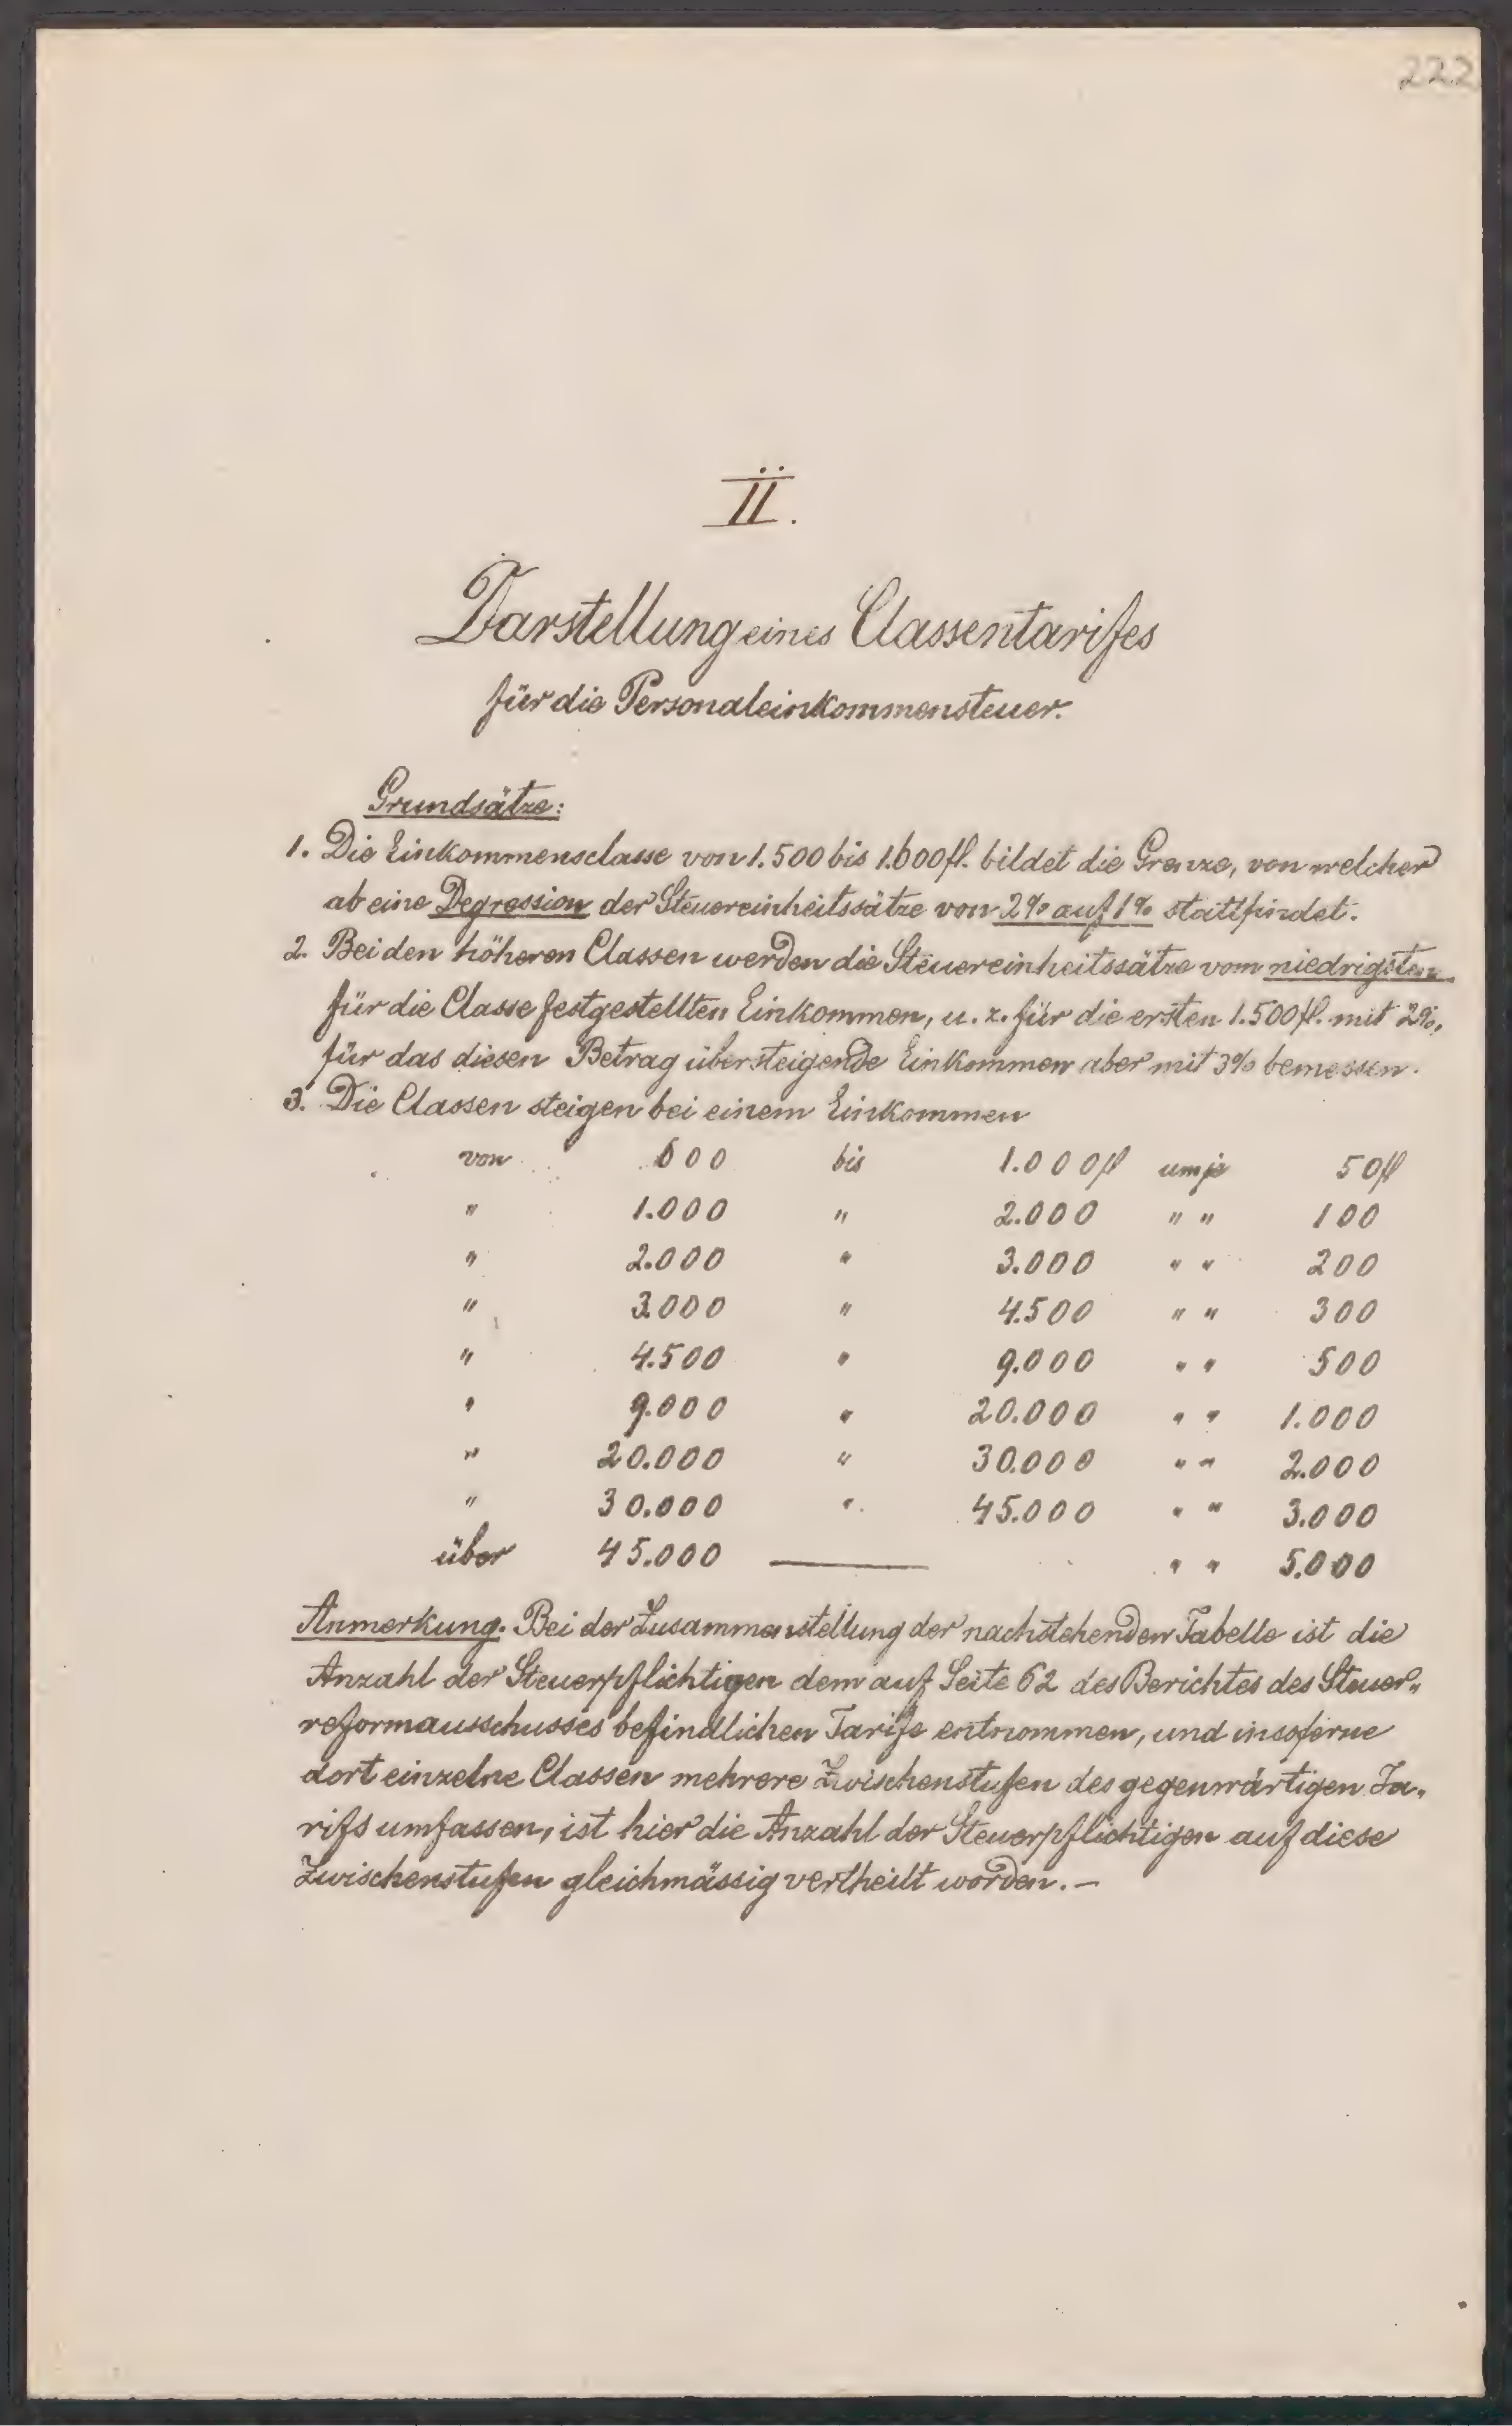 222
II.
Darstellung eines Classentarifes
für die Personaleinkommensteuer.
Grundsätze:
1. Die Einkommensclasse von 1.500 bis 1.600 fl. bildet die Grenze, von welcher
ab eine Degression der Steuereinheitssätze von 2% auf 1% stattfindet.
2. Bei den höheren Classen werden die Steuereinheitssätze vom niedrigsten
für die Classe festgestellten Einkommen, u. z. für die ersten 1.500 fl. mit 2%,
für das diesen Betrag übersteigende Einkommen aber mit 3% bemessen.
3. Die Classen steigen bei einem Einkommen
von 600 bis 1.000 fl um je 50 fl
" 1.000 " 2.000 " " 100
" 2.000 " 3.000 " " 200
" 3.000 " 4.500 " " 300
" 4.500 " 9.000 " " 500
" 9.000 " 20.000 " " 1.000
" 20.000 " 30.000 " " 2.000
" 30.000 " 45.000 " " 3.000
über 45.000 — " " 5.000
Anmerkung. Bei der Zusammenstellung der nachstehenden Tabelle ist die
Anzahl der Steuerpflichtigen dem auf Seite 62 des Berichtes des Steuer-
reformausschusses befindlichen Tarife entnommen, und insoferne
dort einzelne Classen mehrere Zwischenstufen des gegenwärtigen Ta-
rifs umfassen, ist hier die Anzahl der Steuerpflichtigen auf diese
Zwischenstufen gleichmässig vertheilt worden. —